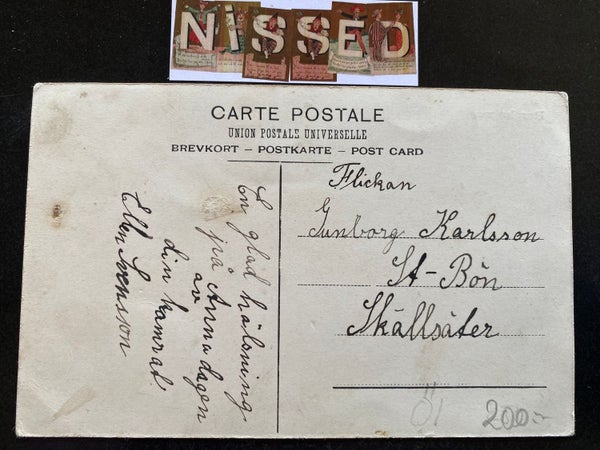 NISSED
CARTE POSTALE
UNION POSTALE UNIVERSELLE
BREVKORT – POSTKARTE – POST CARD
En glad hälsning
på Annadagen
av
din kamrat
Ellen Svensson
Flickan
Gunborg Karlsson
St-Bön
Skällsäter
Öl
200:-